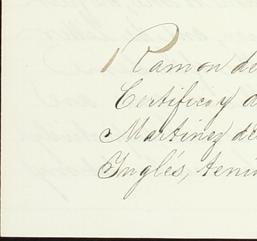 Ramon de
Certifico y d
Martinez de
Inglés, teni